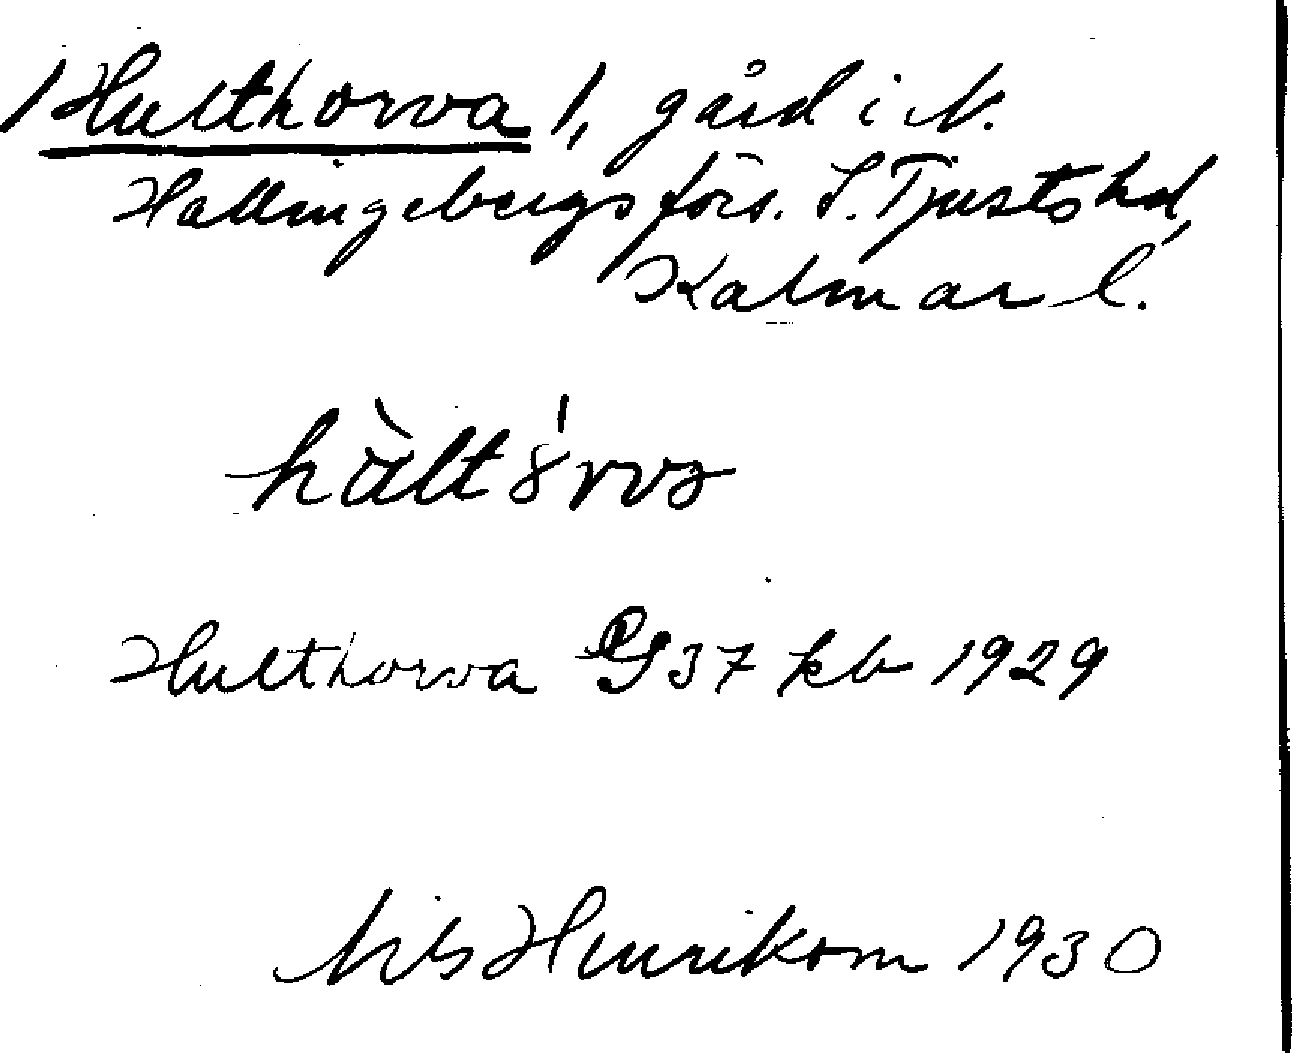 /Hulthorva/, gård i N.
Hallingebergs förs. S. Tjusts hd,
Kalmar l.
hàlt órva
Hulthorva 37 kb 1929
Nils Henrikson 1930